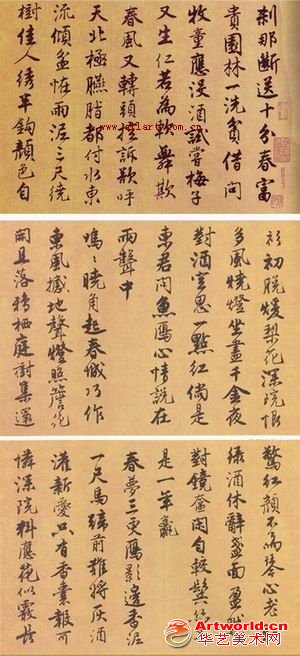 刹那斷送十分春富
貴園林一洗貧借問
牧童應没酒試嘗梅子
又生仁若為軟舞欺
春風又轉頭控訴欲呼
天北極臙脂都付水東
流傾盆怪雨泥三尺繞
樹佳人綉半鈎顔色自
衫初脱暖梨花深院恨
多風燒燈坐盡千金夜
對酒空思一點紅倘是
東君問魚鴈心情説在
雨聲中
嗚嗚曉角起春城巧作
東風撼地聲燈照檐花
開且落鴉栖庭樹集還
驚紅顔不為琴心老
緑酒休辭盞面盈
對鏡奩閑自較鬢
是一年
春夢三更鴈影邊香泥
一尺馬蹄前難將灰酒
灌新愛只有香囊報可
憐深院料應花似霰長
www.artworld.cn
Artworld.cn
华艺美术网